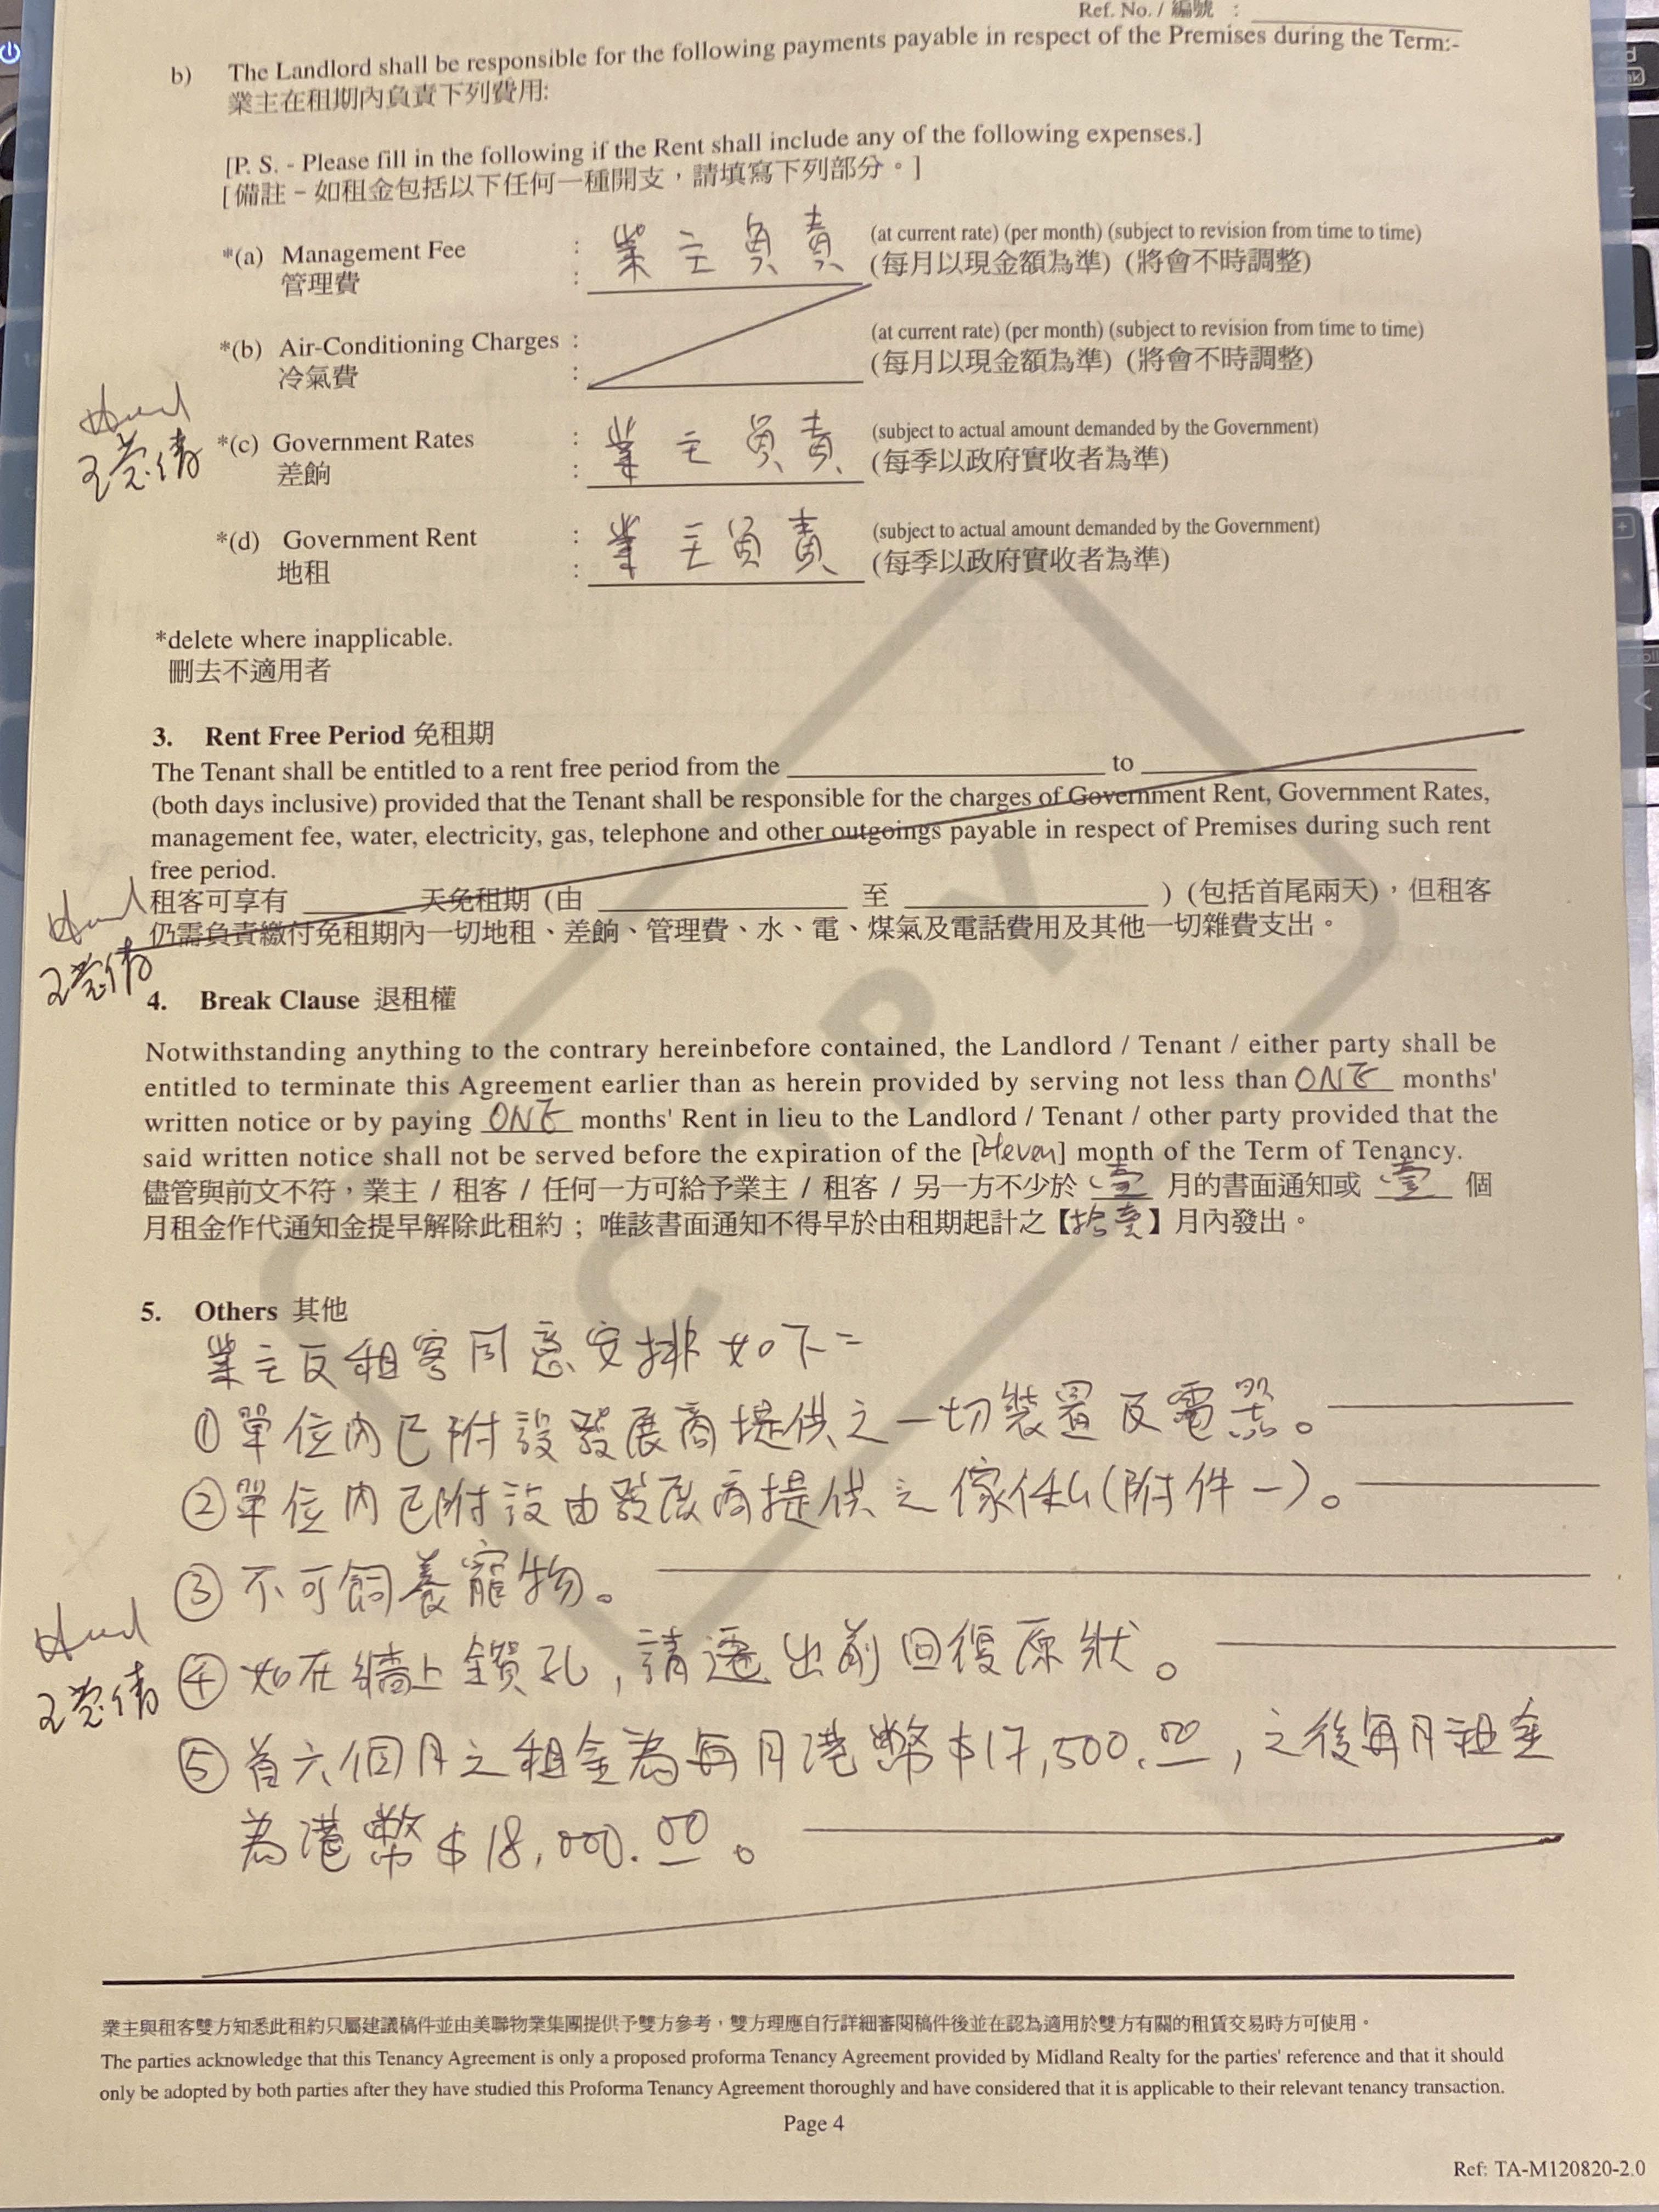 Ref. No. / 編號 :
b) The Landlord shall be responsible for the following payments payable in respect of the Premises during the Term:-
業主在租期內負責下列費用:
[P. S. - Please fill in the following if the Rent shall include any of the following expenses.]
[備註 – 如租金包括以下任何一種開支，請填寫下列部分。]
*(a) Management Fee : 業主負責 (at current rate) (per month) (subject to revision from time to time)
管理費 : (每月以現金額為準) (將會不時調整)
*(b) Air-Conditioning Charges : (at current rate) (per month) (subject to revision from time to time)
冷氣費 : (每月以現金額為準) (將會不時調整)
*(c) Government Rates : 業主負責 (subject to actual amount demanded by the Government)
差餉 : (每季以政府實收者為準)
*(d) Government Rent : 業主負責 (subject to actual amount demanded by the Government)
地租 : (每季以政府實收者為準)
*delete where inapplicable.
刪去不適用者
3. Rent Free Period 免租期
The Tenant shall be entitled to a rent free period from the to
(both days inclusive) provided that the Tenant shall be responsible for the charges of Government Rent, Government Rates,
management fee, water, electricity, gas, telephone and other outgoings payable in respect of Premises during such rent
free period.
租客可享有 天免租期 (由 至 ) (包括首尾兩天)，但租客
仍需負責繳付免租期內一切地租、差餉、管理費、水、電、煤氣及電話費用及其他一切雜費支出。
4. Break Clause 退租權
Notwithstanding anything to the contrary hereinbefore contained, the Landlord / Tenant / either party shall be
entitled to terminate this Agreement earlier than as herein provided by serving not less than ONE months'
written notice or by paying ONE months' Rent in lieu to the Landlord / Tenant / other party provided that the
said written notice shall not be served before the expiration of the [eleven] month of the Term of Tenancy.
儘管與前文不符，業主 / 租客 / 任何一方可給予業主 / 租客 / 另一方不少於 壹 月的書面通知或 壹 個
月租金作代通知金提早解除此租約；唯該書面通知不得早於由租期起計之【拾壹】月內發出。
5. Others 其他
業主及租客同意安排如下=
① 單位內已附設發展商提供之一切裝置及電器。
② 單位內已附設由發展商提供之傢俬(附件一)。
③ 不可飼養寵物。
④ 如在牆上鑽孔，請遷出前回復原狀。
⑤ 首六個月之租金為每月港幣$17,500.00，之後每月租金
為港幣$18,000.00。
業主與租客雙方知悉此租約只屬建議稿件並由美聯物業集團提供予雙方參考，雙方理應自行詳細審閱稿件後並在認為適用於雙方有關的租賃交易時方可使用。
The parties acknowledge that this Tenancy Agreement is only a proposed proforma Tenancy Agreement provided by Midland Realty for the parties' reference and that it should
only be adopted by both parties after they have studied this Proforma Tenancy Agreement thoroughly and have considered that it is applicable to their relevant tenancy transaction.
Page 4
Ref: TA-M120820-2.0
COPY